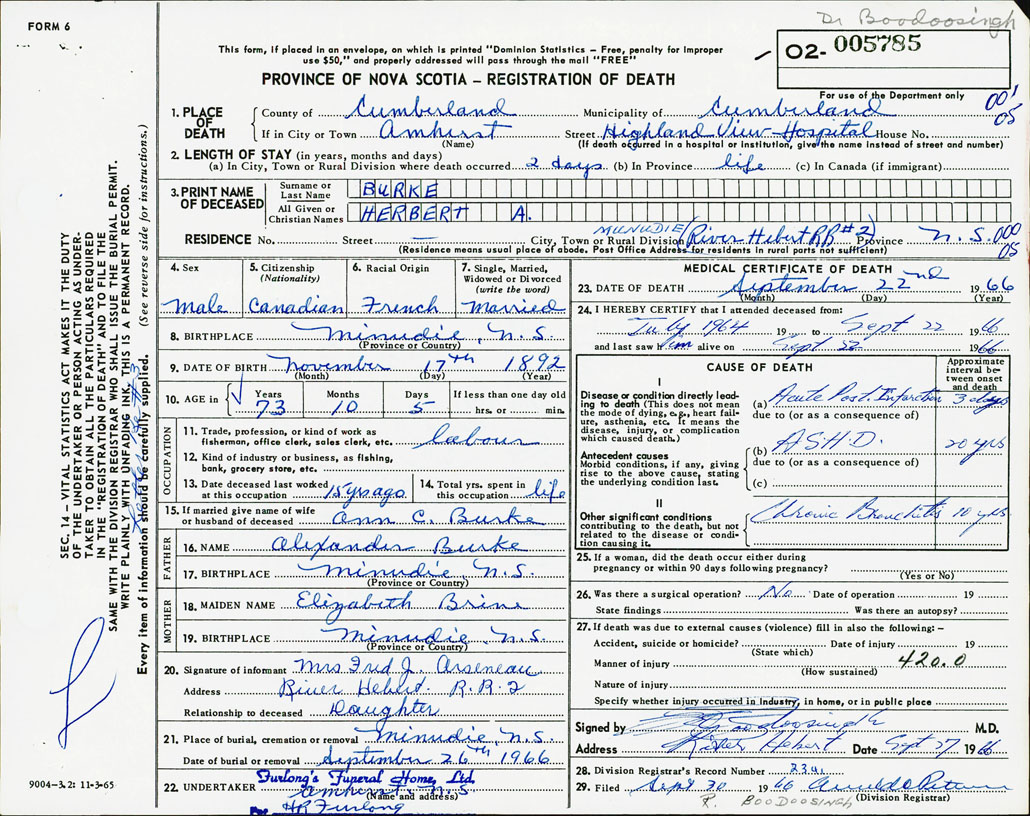 Dr Boodoosingh
FORM 6
This form, if placed in an envelope, on which is printed "Dominion Statistics – Free, penalty for improper
use $50," and properly addressed will pass through the mail "FREE"
02- 005785
PROVINCE OF NOVA SCOTIA – REGISTRATION OF DEATH
For use of the Department only
001
05
1. PLACE OF DEATH
County of Cumberland Municipality of Cumberland
If in City or Town Amherst Street Highland View Hospital House No.
(Name) (If death occurred in a hospital or institution, give the name instead of street and number)
2. LENGTH OF STAY (in years, months and days)
(a) In City, Town or Rural Division where death occurred 2 days (b) In Province life (c) In Canada (if immigrant)
3. PRINT NAME OF DECEASED
Surname or Last Name BURKE
All Given or Christian Names HERBERT A.
MINUDIE
RESIDENCE No. Street — City, Town or Rural Division (River Hebert RR #2) Province N.S. 000
05
(Residence means usual place of abode. Post Office Address for residents in rural parts not sufficient)
4. Sex
Male
5. Citizenship (Nationality)
Canadian
6. Racial Origin
French
7. Single, Married, Widowed or Divorced (write the word)
Married
8. BIRTHPLACE Minudie, N.S.
(Province or Country)
9. DATE OF BIRTH November 17th 1892
(Month) (Day) (Year)
10. AGE in Years Months Days If less than one day old
73 10 5 hrs. or min.
OCCUPATION
11. Trade, profession, or kind of work as
fisherman, office clerk, sales clerk, etc. labour
12. Kind of industry or business, as fishing,
bank, grocery store, etc.
13. Date deceased last worked at this occupation 15 yrs ago
14. Total yrs. spent in this occupation life
15. If married give name of wife
or husband of deceased Ann C. Burke
FATHER
16. NAME Alexander Burke
17. BIRTHPLACE Minudie, N.S.
(Province or Country)
MOTHER
18. MAIDEN NAME Elizabeth Brine
19. BIRTHPLACE Minudie, N.S.
(Province or Country)
20. Signature of informant Mrs Fred J. Arseneau
Address River Hebert. R.R.2
Relationship to deceased Daughter
21. Place of burial, cremation or removal Minudie, N.S.
Date of burial or removal September 26th 1966
22. UNDERTAKER Furlong's Funeral Home, Ltd.
Amherst N.S
(Name and address)
Per HR Furlong
MEDICAL CERTIFICATE OF DEATH
23. DATE OF DEATH September 22nd 1966
(Month) (Day) (Year)
24. I HEREBY CERTIFY that I attended deceased from:
July 1964 19 to Sept 22 1966
and last saw him alive on Sept 22 1966
CAUSE OF DEATH
Approximate interval between onset and death
I
Disease or condition directly leading to death (This does not mean the mode of dying, e.g., heart failure, asthenia, etc. It means the disease, injury, or complication which caused death.)
(a) Acute Post. Infarction 3 days
due to (or as a consequence of)
Antecedent causes
Morbid conditions, if any, giving rise to the above cause, stating the underlying condition last.
(b) A.S.H.D. 20 yrs
due to (or as a consequence of)
(c)
II
Other significant conditions contributing to the death, but not related to the disease or condition causing it.
Chronic Bronchitis 10 yrs
25. If a woman, did the death occur either during
pregnancy or within 90 days following pregnancy?
(Yes or No)
26. Was there a surgical operation? No Date of operation 19
State findings Was there an autopsy?
27. If death was due to external causes (violence) fill in also the following:–
Accident, suicide or homicide? Date of injury 19
(State which)
Manner of injury 420.0
(How sustained)
Nature of injury
Specify whether injury occurred in Industry, in home, or in public place
Signed by Boodoosingh M.D.
Address River Hebert Date Sept 27 1966
28. Division Registrar's Record Number 234.
29. Filed Sept 30 1966
(Division Registrar)
R. BOODOOSINGH
SEC. 14 – VITAL STATISTICS ACT MAKES IT THE DUTY
OF THE UNDERTAKER OR PERSON ACTING AS UNDER-
TAKER TO OBTAIN ALL THE PARTICULARS REQUIRED
IN THE "REGISTRATION OF DEATH" AND TO FILE THE
SAME WITH THE DIVISION REGISTRAR WHO SHALL ISSUE THE BURIAL PERMIT.
WRITE PLAINLY WITH UNFADING INK, THIS IS A PERMANENT RECORD.
Every item of information should be carefully supplied. (See reverse side for instructions.)
9004-3.2: 11-3-65